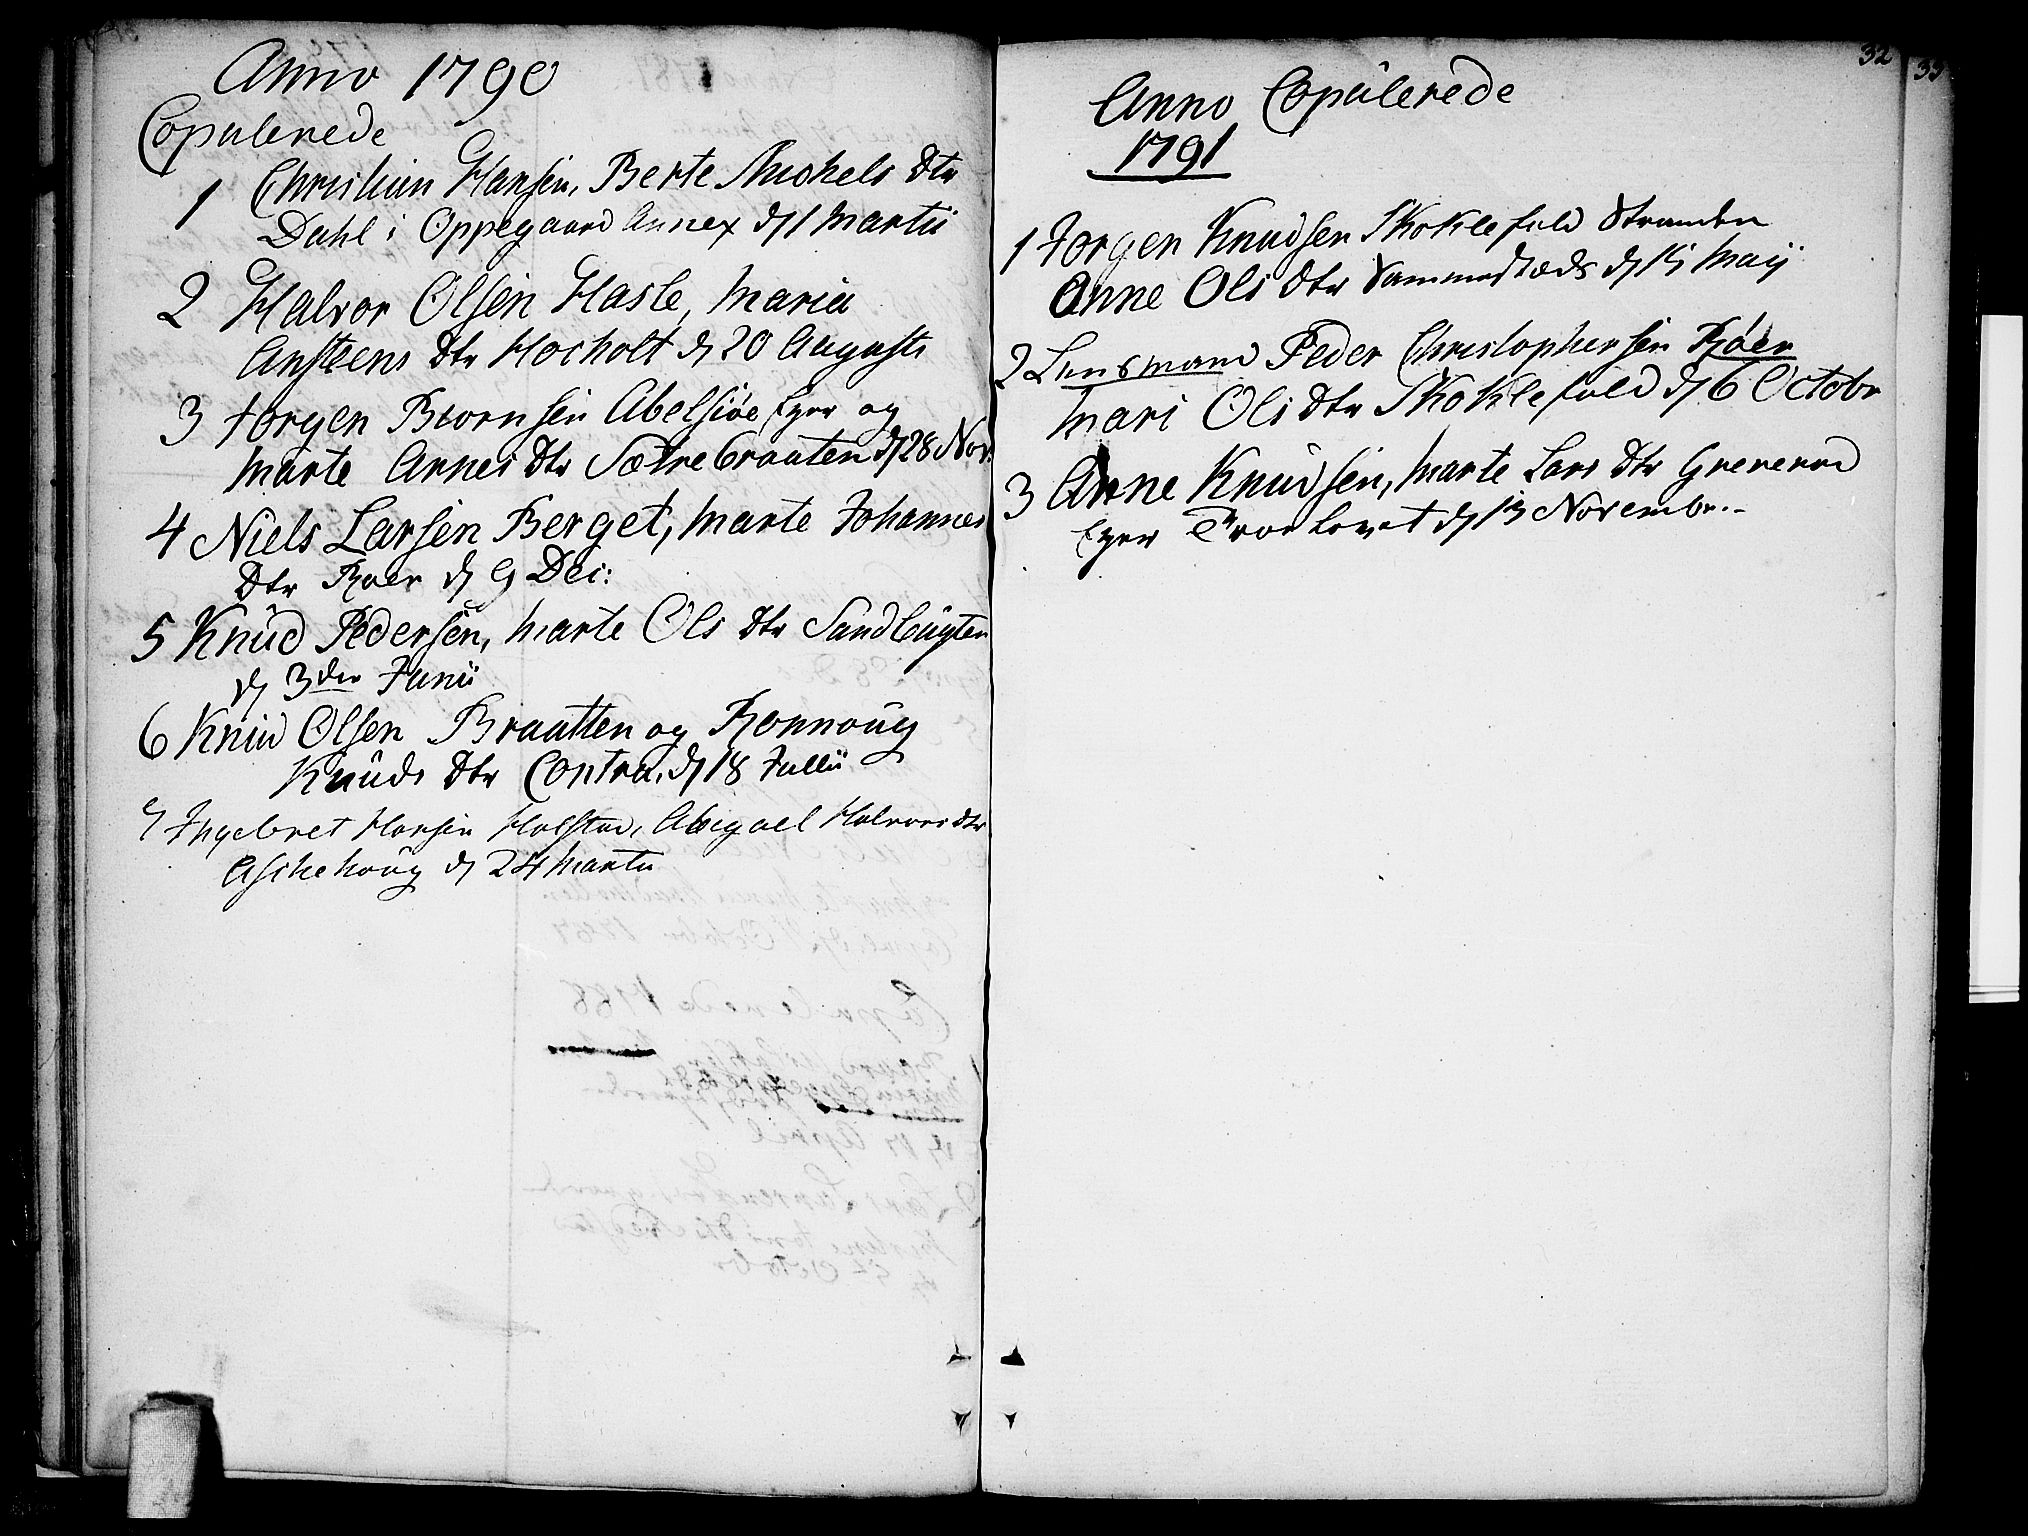 Anno 1790
Copulerede
1 Christian Hansen, Berte Michels Dtr
Dahl i Oppegaard Annex d 1 Martii
2 Halvor Olsen Hasle, Maria
Ansteens Dtr Hocholt d 20 Augusti
3 Jørgen Biørnsen Abelsiøe Eyer og
Marte Arnes Dtr Sætrebraaten d 28 Nov:
4 Niels Larsen Berget, Marte Johannes
Dtr Roer d 9 Dec:
5 Knud Pedersen, Marte Ols Dtr Sandbugten
d 3die Junii
6 Knud Olsen Braatten og Ronnoug
Knuds Dtr Contra, d 18 Julii
7 Ingebret Hansen Holstad, Abigael Halvors Dtr
Aschehoug d 24 Martii
32
33
Anno Copulerede
1791
1 Jørgen Knudsen Skoklefald Stranden
Anne Ols Dtr Sammestæds d Maij
2 Lensmand Peder Christophersen Røer
Mari Ols Dtr Skoklefald d 6 Octobr
3 Arne Knudsen, Marte Lars Dtr
d 13 Novembr.